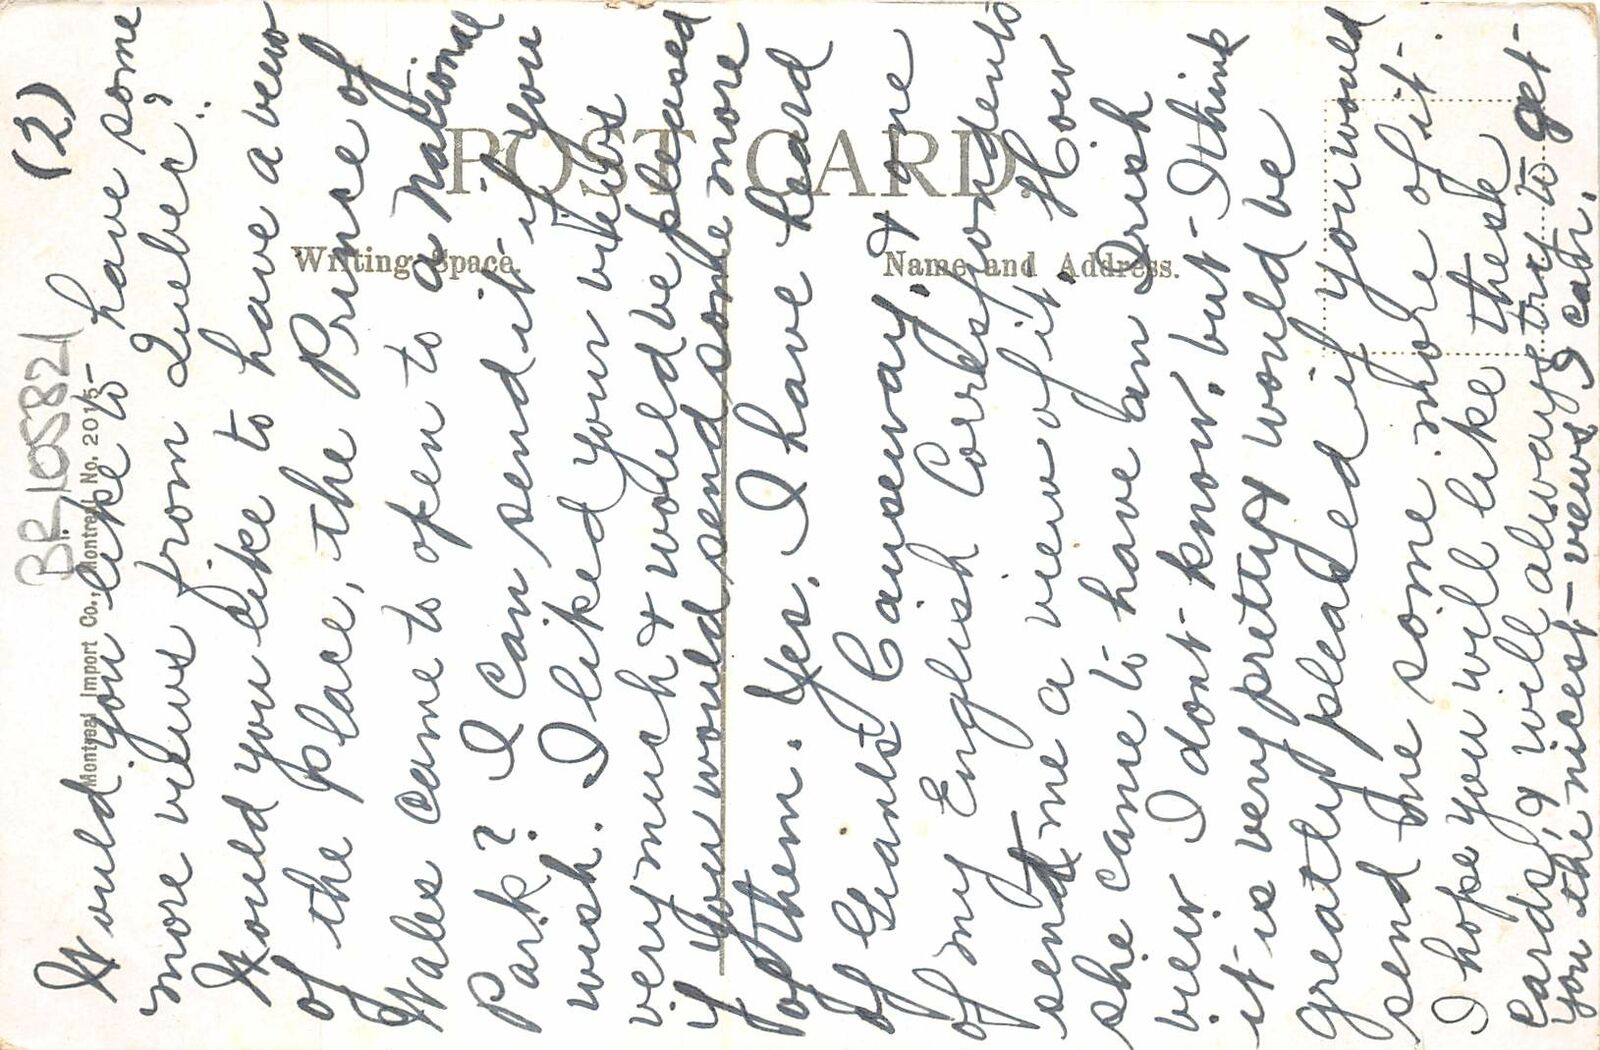 (2)
BR 10582
Would you like to have some
more views from Quebec?
Would you like to have a view
of the place, the Prince of
Wales came to open to a National
Park? I can send it if you
wish. I liked your views
very much & would be pleased
if you would send some more
of them. Yes, I have heard
of Giants Causeway, & one
of my English Correspondents
send me a view of it. How
she came to have an Irish
view I dont know, but I think
it is very pretty & would be
greatly pleased if you would
send me some more of it.
I hope you will like these
cards, & will always try to get
you the nicest views I can.
POST CARD.
Writing Space.
Name and Address.
Montreal Import Co., Montreal, No. 2015